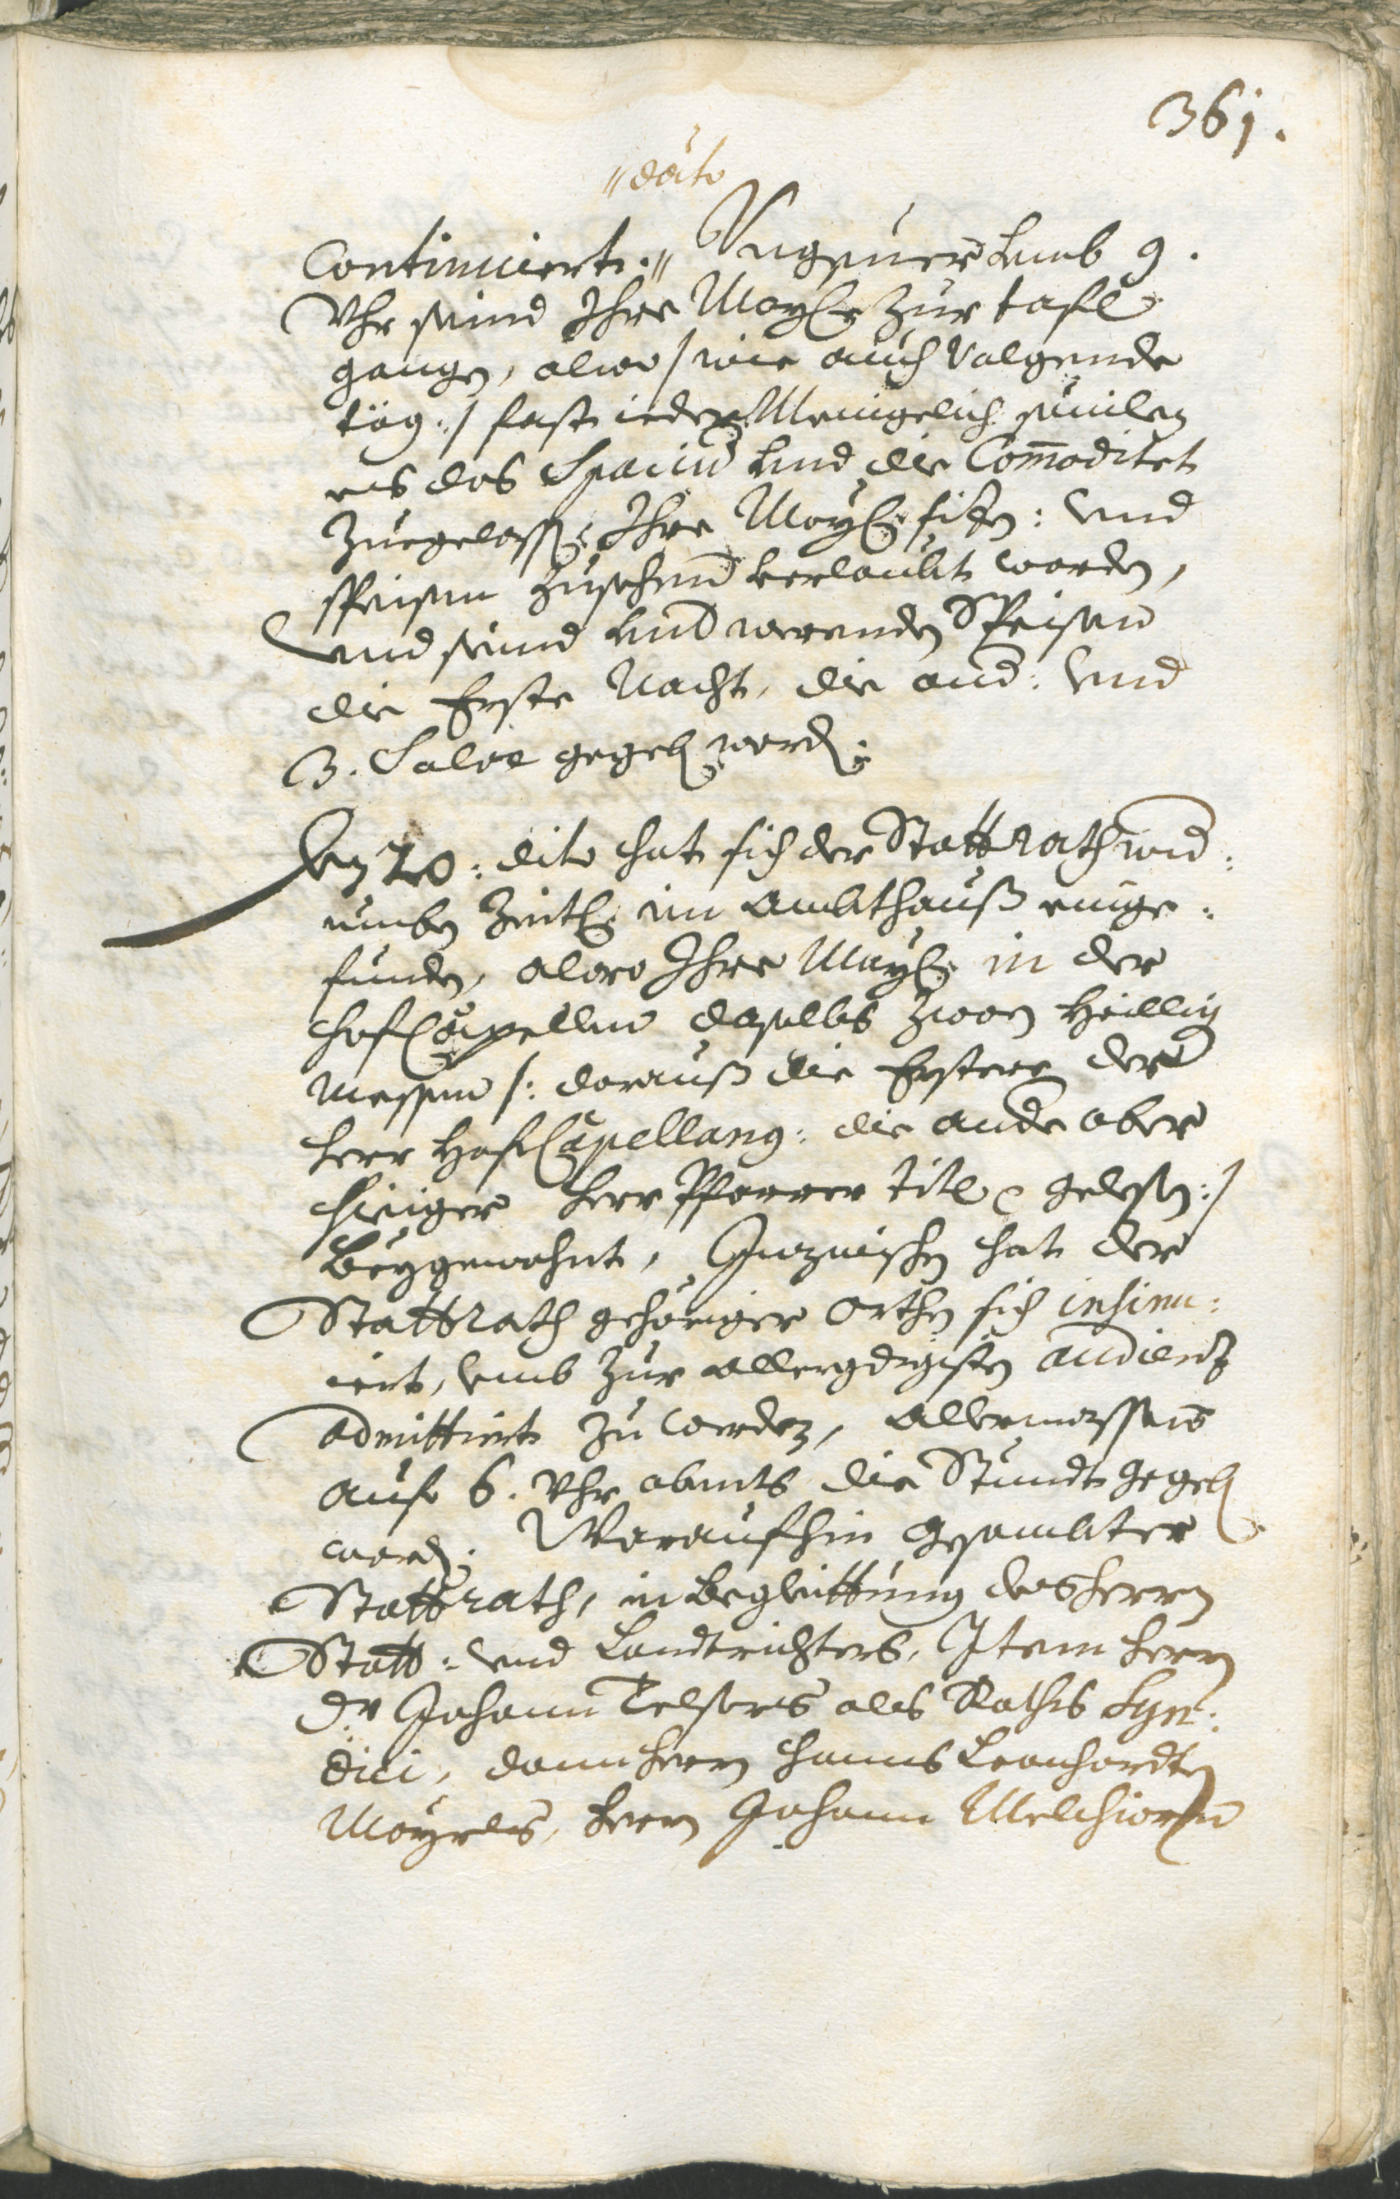 361.
"dato
Continuiert." Ungeuer umb 9.
Uhr seind Ihre Mayt: zur tafl
gangen, alwo /: wie auch volgende
täg :/ fast ieder Menigelich, sovil
es das Spatiu und die Com̄oditet
zuegelassen, Ihre Mayt: sizen: und
speisen zusehen verlaubt worden,
und seind und werenden Speisen
die Erste Nacht, die and: und
3. Salve gegeben worden.
Den 20: dito hat sich der Stattrath wid:
umben zeitl: im Ambthauß einge:
funden, alwo Ihre Mayt: in der
hofCapellen daselbs zwoen Heillig
Messen /: darauß die Erstere der
herr HofCapellang: die ander aber
hieiger herr Pfarrer titl: gelesen :/
Beygewohnt, Inzwischen hat der
Stattrath gehöriger Orthen sich insinu:
iert, umb zur allergdigisten audientz
admittiert zu werden, allermassens
auf 6. Uhr abents die Stundt gegeben
worden. Woraufhin gesambter
Stattrath, in Begleittung des herrn
Statt: und Landtrichters, Item herrn
Dr Johann Telsers als Raths Syn:
dici, dann herrn Hanns Leonhardten
Mayrls, herrn Johann Melchiorn